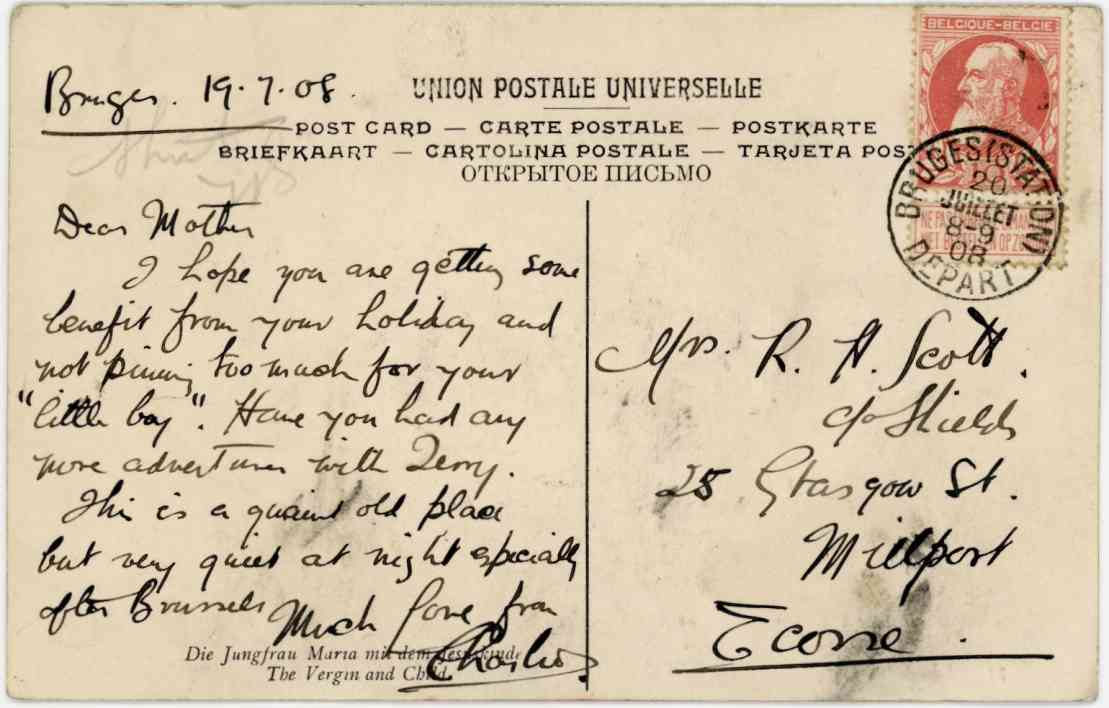 BELGIQUE-BELGIE
Bruges. 19.7.08.
UNION POSTALE UNIVERSELLE
POST CARD — CARTE POSTALE — POSTKARTE
BRIEFKAART — CARTOLINA POSTALE — TARJETA POST
ОТКРЫТОЕ ПИСЬМО
BRUGES (STATION)
20
JUILLET
8-9
08
DEPART
Dear Mother
I hope you are getting some
benefit from your holiday and
not pining too much for your
"little boy". Have you had any
more adventures with Terry.
This is a quaint old place
but very quiet at night especially
after Brussels
Much love from
Charlie
Mrs. R. H. Scott.
c/o Shields
25 Glasgow St.
Millport
Ecosse.
Die Jungfrau Maria mit dem Jesuskinde
The Vergin and Child